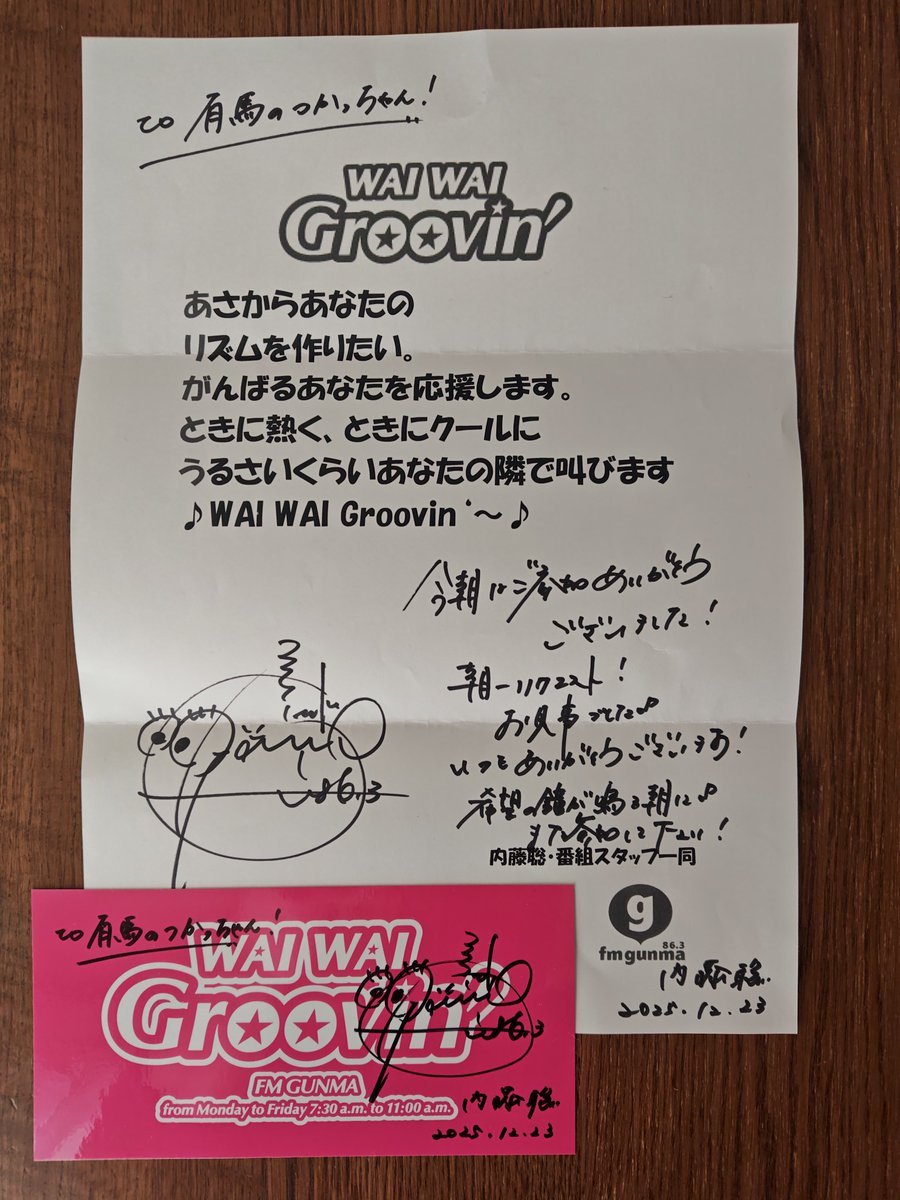 to 有馬のつかっちゃん!
WAI WAI
Groovin'
あさからあなたの
リズムを作りたい。
がんばるあなたを応援します。
ときに熱く、ときにクールに
うるさいくらいあなたの隣で叫びます
♪WAI WAI Groovin'～♪
今朝はご参加ありがとう
ございました!
朝一リクエスト!
お見事でした♪
いつもありがとうございます!
希望の鐘が鳴る朝に♪
また参加して下さい!
86.3
内藤聡・番組スタッフ一同
g
86.3
fmgunma
内藤聡
2025.12.23
to 有馬のつかっちゃん!
WAI WAI
Groovin'
86.3
FM GUNMA
from Monday to Friday 7:30 a.m. to 11:00 a.m.
内藤聡
2025.12.23